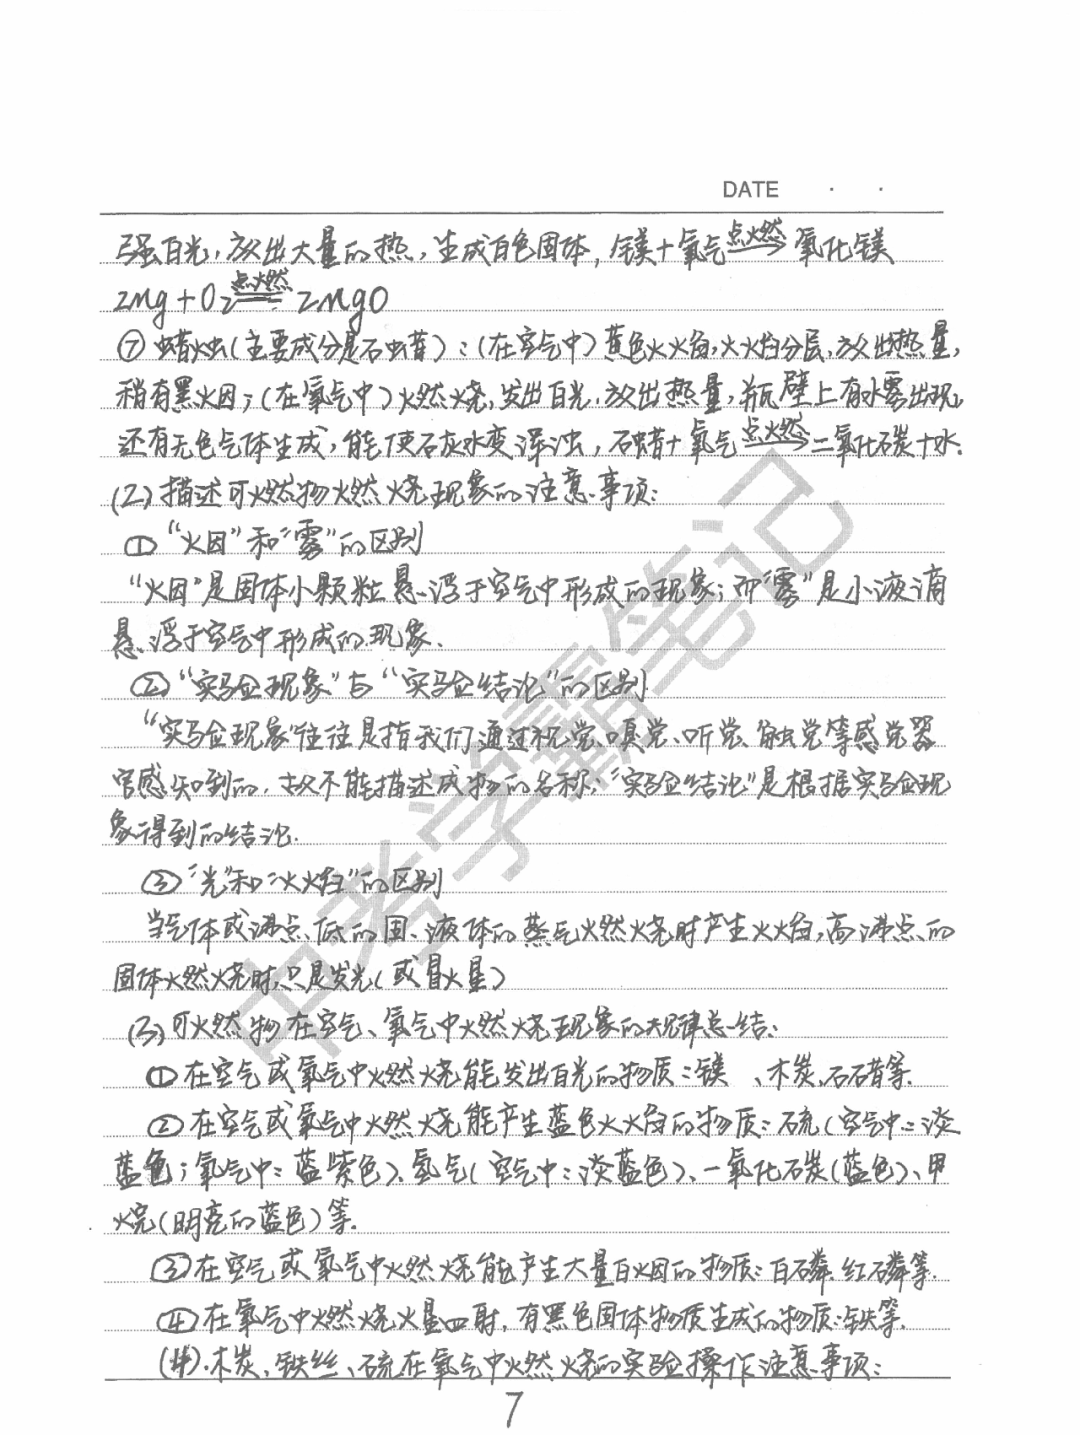 DATE · ·
强白光,放出大量的热,生成白色固体,镁+氧气 点燃→ 氧化镁
2Mg+O2 点燃== 2MgO
⑦蜡烛(主要成分是石蜡):(在空气中)黄色火焰,火焰分层,放出热量,
稍有黑烟;(在氧气中)燃烧,发出白光,放出热量,瓶壁上有水雾出现,
还有无色气体生成,能使石灰水变浑浊,石蜡+氧气 点燃→ 二氧化碳+水.
(2)描述可燃物燃烧现象的注意事项:
①“烟”和“雾”的区别
“烟”是固体小颗粒悬浮于空气中形成的现象;而“雾”是小液滴
悬浮于空气中形成的现象.
②“实验现象”与“实验结论”的区别
“实验现象”往往是指我们通过视觉、嗅觉、听觉、触觉等感觉器
官感知到的,故不能描述成物的名称;“实验结论”是根据实验现
象得到的结论.
③“光”和“火焰”的区别
当气体或沸点低的固、液体的蒸气燃烧时产生火焰,高沸点的
固体燃烧时,只是发光(或冒火星)
(3)可燃物在空气、氧气中燃烧现象的规律总结:
①在空气或氧气中燃烧能发出白光的物质:镁 、木炭、石蜡等.
②在空气或氧气中燃烧能产生蓝色火焰的物质:硫(空气中:淡
蓝色;氧气中:蓝紫色)、氢气(空气中:淡蓝色)、一氧化碳(蓝色)、甲
烷(明亮的蓝色)等.
③在空气或氧气中燃烧能产生大量白烟的物质:白磷、红磷等.
④在氧气中燃烧火星四射,有黑色固体物质生成的物质:铁等.
(4).木炭、铁丝、硫在氧气中燃烧的实验操作注意事项:
7
中考学霸笔记